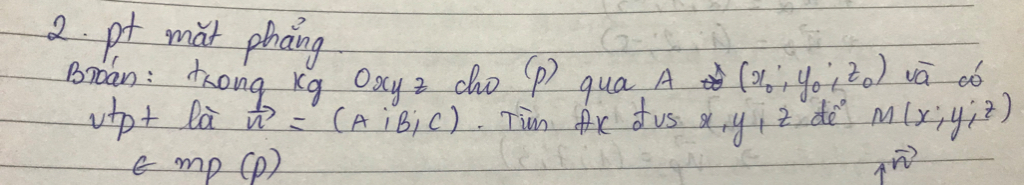 2. pt mặt phẳng.
Btoán: trong kg Oxyz cho (P) qua A (x₀; y₀; z₀) và có
vtpt là n⃗ = (A; B; C). Tìm đk đvs x, y, z để M(x; y; z)
∈ mp (P)
n⃗